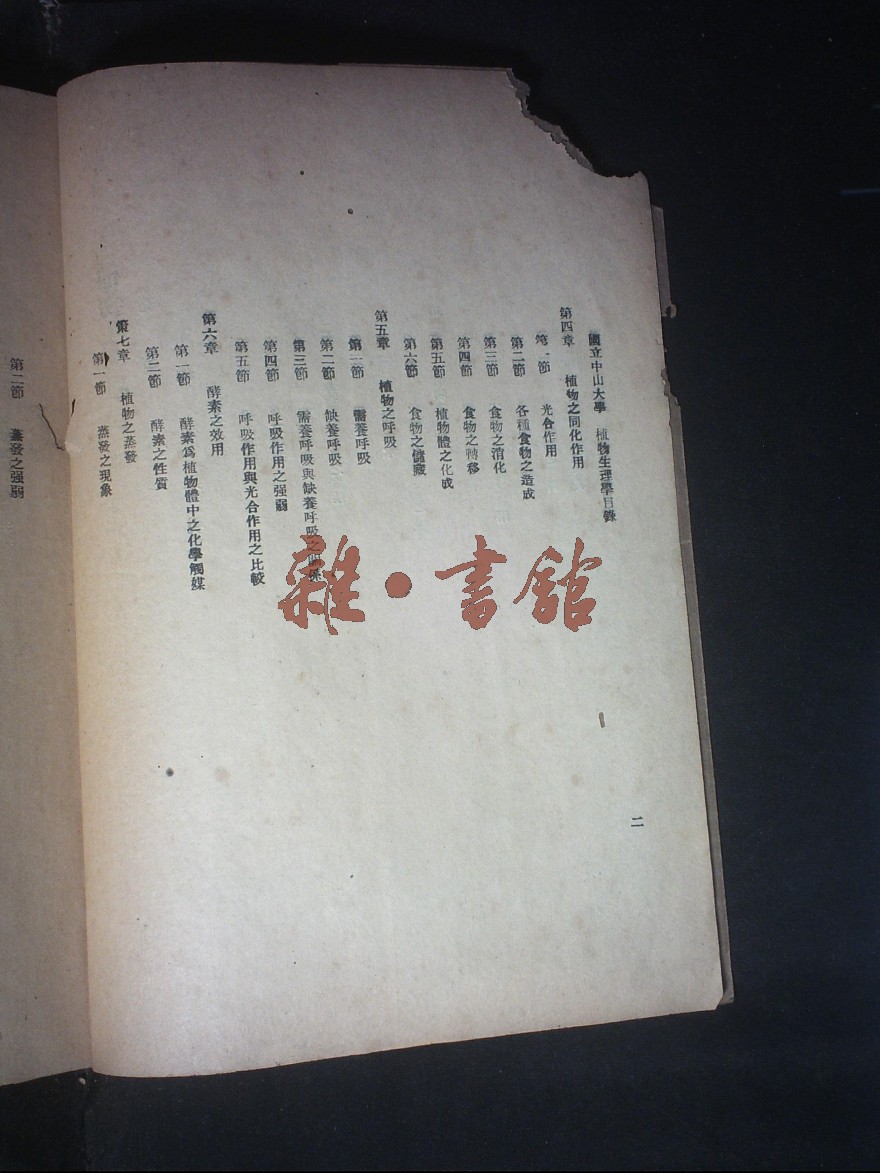 國立中山大學 植物生理學目錄
第四章 植物之同化作用
第一節 光合作用
第二節 各種食物之造成
第三節 食物之消化
第四節 食物之轉移
第五節 植物體之化成
第六節 食物之儲藏
第五章 植物之呼吸
第一節 需養呼吸
第二節 缺養呼吸
第三節 需養呼吸與缺養呼吸之關係
第四節 呼吸作用之强弱
第五節 呼吸作用與光合作用之比較
第六章 酵素之效用
第一節 酵素爲植物體中之化學觸媒
第二節 酵素之性質
第七章 植物之蒸發
第一節 蒸發之現象
二
第二節 蒸發之强弱
雜·書館